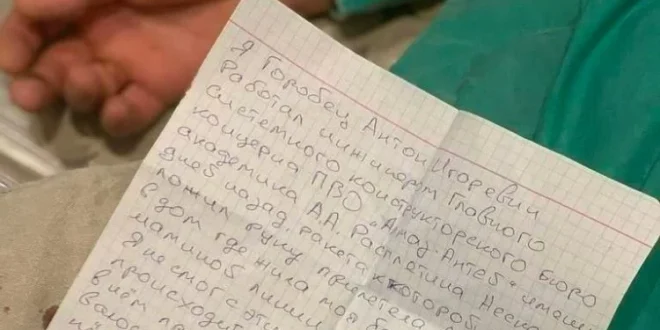 Я Горобец Антон Игоревич
Работал инжинером Главного
системного конструкторского бюро
концерна ПВО "Алмаз-Антей" имени
академика А.А. Расплетина Неско
дней назад, ракета к которой
ложил руку прилетела
в дом где жила моя б
маминой лини
Я не смог с эти
происходит
в нём пр